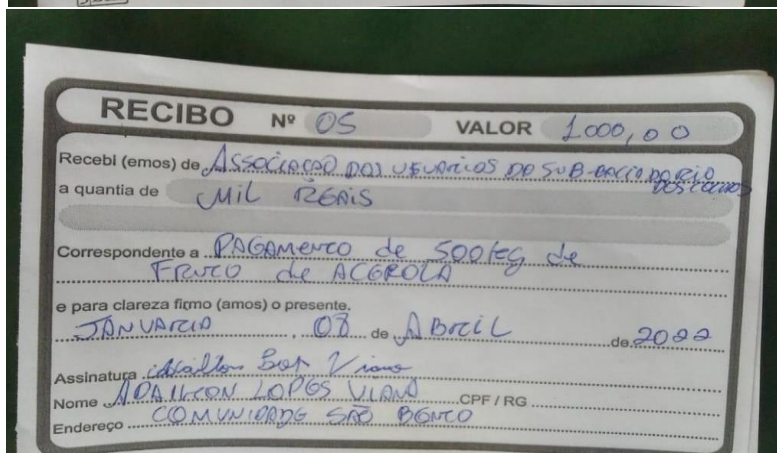 RECIBO Nº 05 VALOR 1.000,00
Recebi (emos) de ASSOCIAÇÃO DOS USUARIOS DO SUB-BACIA DO RIO
DOS COCHOS
a quantia de MIL REAIS
Correspondente a PAGAMENTO de 500 kg de
FRUTO de ACEROLA
e para clareza firmo (amos) o presente.
JANUARIA, 08 de ABRIL de 2022
Assinatura
Nome ADAILTON LOPES VIANA CPF / RG
Endereço COMUNIDADE SÃO BENTO